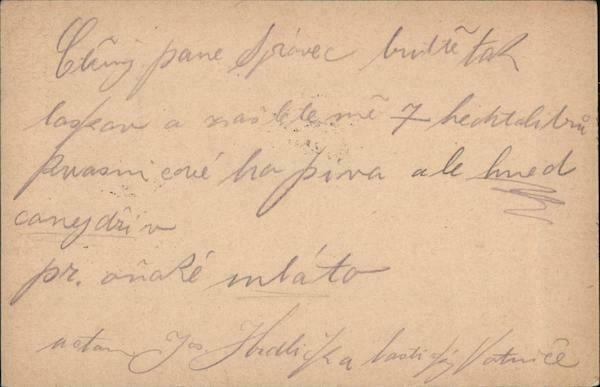 Ctěný pane Správec buďtě tak
laskav a zašlete mě 7 hechtolitrů
kvasnicové ho piva ale hned
canejdřív
pr. oňaké mláto
Jos Hrdlička